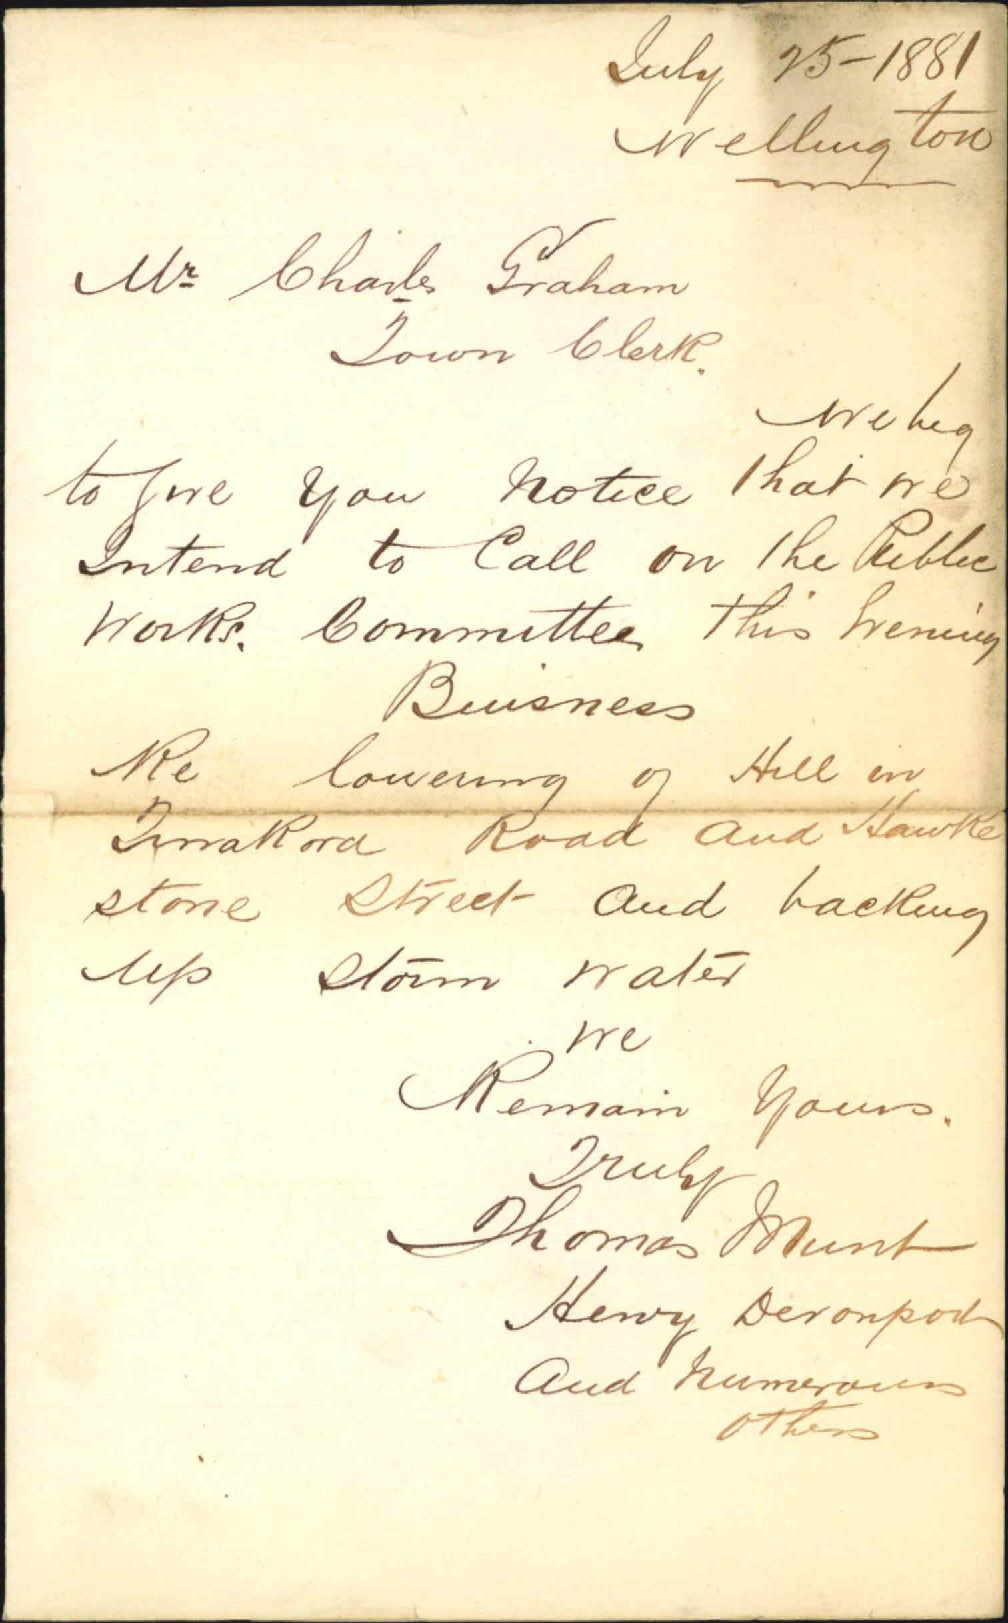 July 25-1881
Wellington
Mr Charles Graham
Town Clerk.
We beg
to Give You Notice that we
Intend to Call on the Public
Works. Committee this Evening
Buisness
Re lowering of Hill in
Tinakora Road and Hawke
stone Street and backing
up storm water
We
Remain Yours.
Truly
Thomas Munt
Henry Devonport
And Numerous
others